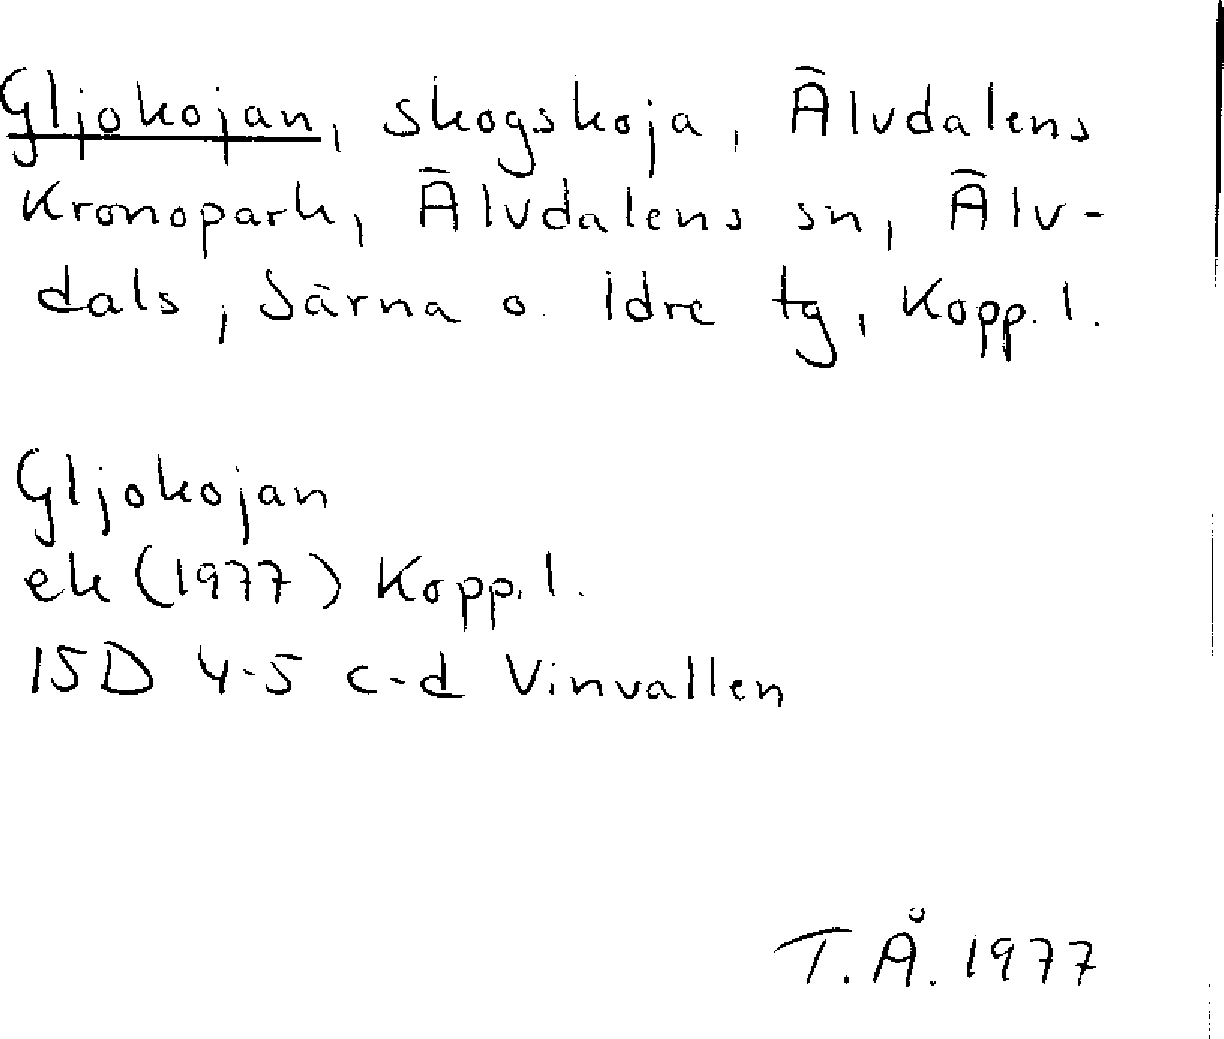 Gljokojan, skogskoja, Älvdalens
Kronopark, Älvdalens sn, Älv-
dals, Särna o. Idre tg, Kopp. l.
Gljokojan
ek (1977) Kopp. l.
15D 4-5 c-d Vinvallen
T.Å. 1977